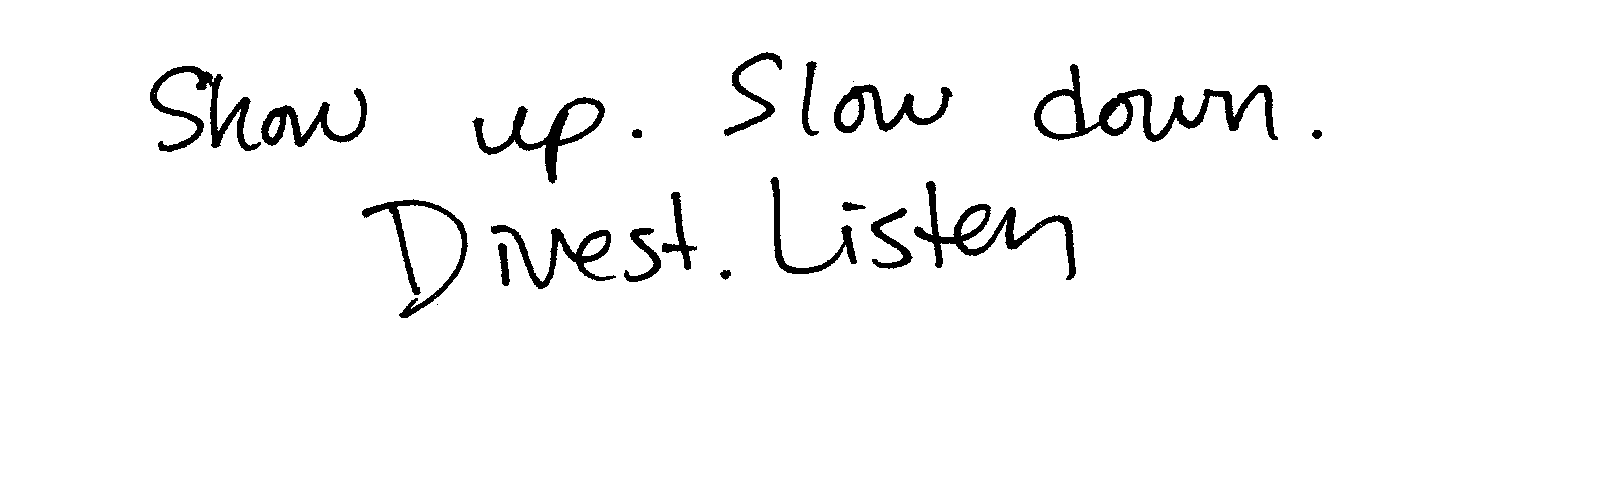 Show up. Slow down.
Divest. Listen